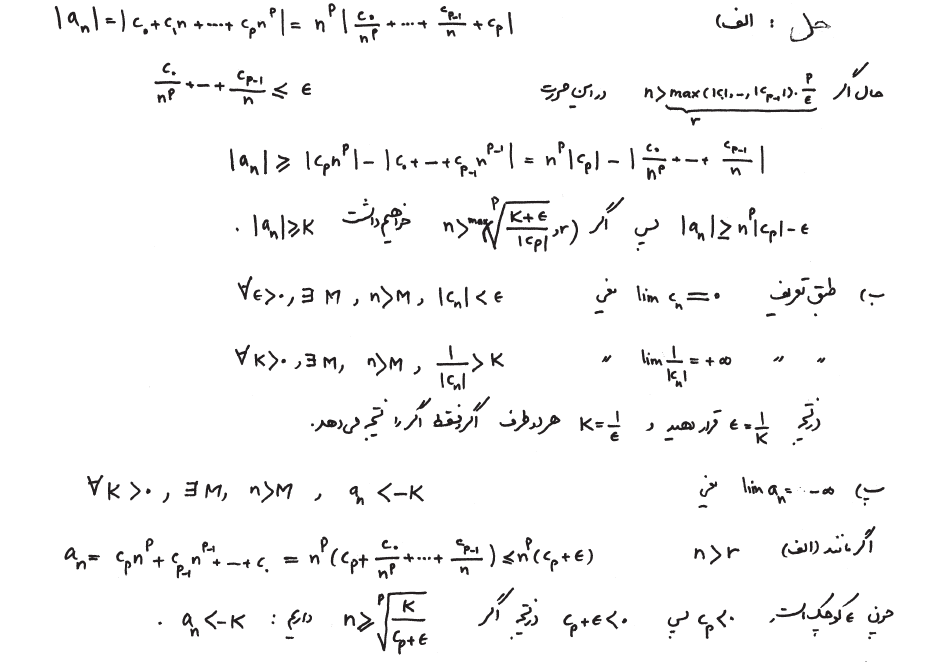 حل : الف) |aₙ| = |c₀ + c₁n + ⋯ + cₚnᵖ| = nᵖ |c₀/nᵖ + ⋯ + cₚ₋₁/n + cₚ|
حال اگر n > max(|c₁|, …, |cₚ₋₁|) · p/ε در این صورت c₀/nᵖ + ⋯ + cₚ₋₁/n ≤ ε
r
|aₙ| ≥ |cₚnᵖ| − |c₀ + ⋯ + cₚ₋₁nᵖ⁻¹| = nᵖ|cₚ| − |c₀/nᵖ + ⋯ + cₚ₋₁/n|
|aₙ| ≥ nᵖ|cₚ| − ε پس اگر n > max(ᵖ√((K+ε)/|cₚ|), r) خواهیم داشت |aₙ| ≥ K .
ب) طبق تعریف lim cₙ = 0 یعنی ∀ε>0, ∃M, n>M, |cₙ| < ε
" " lim 1/|cₙ| = +∞ " ∀K>0, ∃M, n>M, 1/|cₙ| > K
در نتیجه ε = 1/K قرار دهید و K = 1/ε هر دو طرف اگر و فقط اگر را نتیجه می‌دهد.
پ) lim aₙ = −∞ یعنی ∀K>0, ∃M, n>M, aₙ < −K
اگر مانند (الف) n > r aₙ = cₚnᵖ + cₚ₋₁nᵖ⁻¹ + ⋯ + c₀ = nᵖ(cₚ + c₀/nᵖ + ⋯ + cₚ₋₁/n) ≤ nᵖ(cₚ + ε)
چون ε کوچک است, cₚ < 0 پس cₚ + ε < 0 در نتیجه اگر n ≥ ᵖ√(K/(cₚ+ε)) داریم : aₙ < −K .